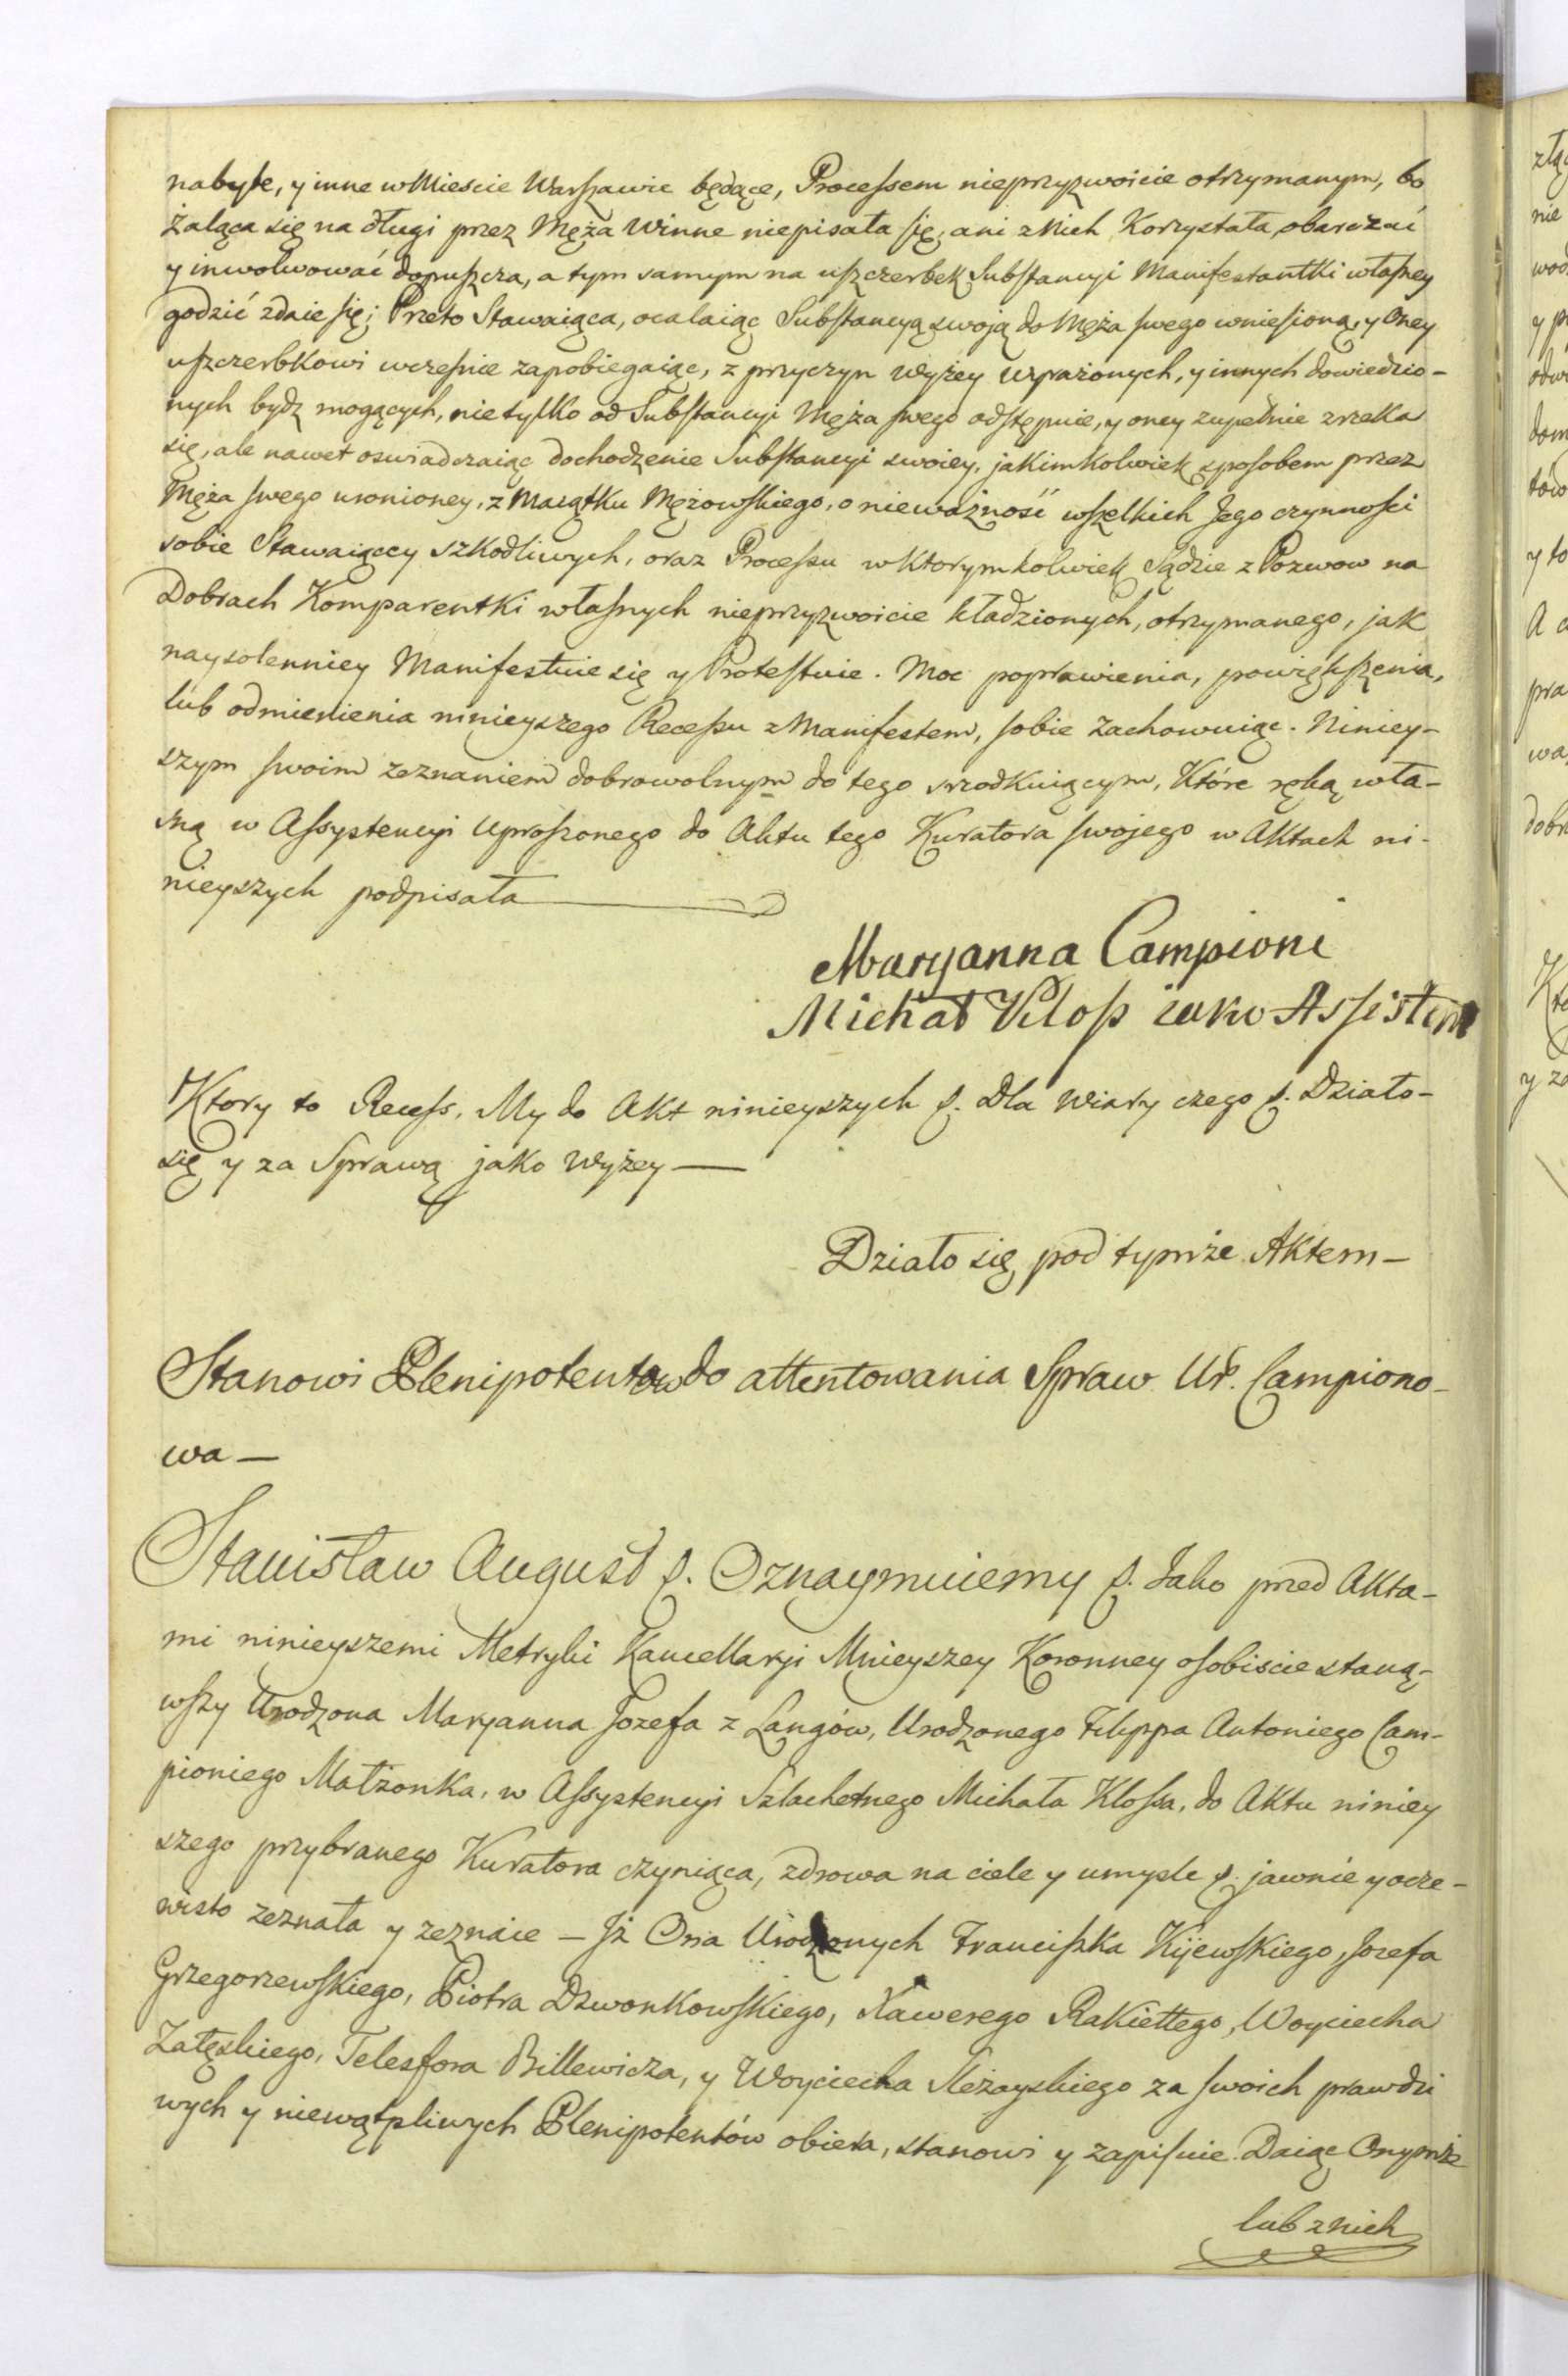 nabyte, y inne w Mieście Warszawie będące, Processem nieprzyzwoicie otrzymanym, bo
żaląca się na długi przez Męża winne niepisała się, ani z Nich Korzystała, obarczać
y inwolwować dopuszcza, a tym samym na uszczerbek Substancyi Manifestantki własney
godzić zdaie się; Przeto Stawaiąca, ocalaiąc Substancyą swoją do Męża swego wniesioną, y Oney
uszczerbkowi wcześnie zapobiegaiąc, z przyczyn wyżey wyrażonych, y innych dowiedzio-
nych bydź mogących, nie tylko od Substancyi Męża swego odstępuie, y oney zupełnie zrzeka
się, ale nawet oswiadczaiąc dochodzenie Substancyi swoiey, jakimkolwiek sposobem przez
Męża swego uronioney, z Maiątku Mężowskiego, o nieważność wszelkich Jego czynności
sobie Stawaiącey szkodliwych, oraz Processu w Ktorymkolwiek Sądzie z Pozwow na
Dobrach Komparentki własnych nieprzyzwoicie kładzionych, otrzymanego, jak
naysolenniey Manifestuie się y Protestuie. Moc poprawienia, powiększenia,
lub odmienienia ninieyszego Recessu z Manifestem, sobie zachowuiąc. Niniey-
szym swoim zeznaniem dobrowolnym do tego srzodkuiącym, Które ręką wła-
sną w Assystencyi uproszonego do Aktu tego Kuratora swojego w Aktach ni-
nieyszych podpisała
Maryanna Campioni
Michał Kloss iako Assistent
Ktory to Recess, My do Akt ninieyszych p. Dla Wiary czego p. Działo-
się y za Sprawą jako Wyżey —
Działo się pod tymże Aktem —
Stanowi Plenipotentow do attentowania Spraw Ur. Campiono-
wa —
Stanisław August p. Oznaymuiemy p. Jako przed Akta-
mi ninieyszemi Metryki Kancellaryi Mnieyszey Koronney osobiscie staną-
wszy Urodzona Maryanna Jozefa z Langów, Urodzonego Filippa Antoniego Cam-
pioniego Małżonka, w Assystencyi Szlachetnego Michała Klossa, do Aktu niniey
szego przybranego Kuratora czyniąca, zdrowa na ciele y umysle p. jawnie y ocze-
wisto zeznała y zeznaie — Jż Ona Urodzonych Franciszka Kijewskiego, Jozefa
Grzegorzewskiego, Piotra Dzwonkowskiego, Xawerego Rakiettego, Woyciecha
Załęskiego, Telesfora Billewicza, y Woyciecha Sleżayskiego za swoich prawdzi
wych y niewątpliwych Plenipotentów obiera, stanowi y zapisuie. Daiąc Onymże
lub z nich